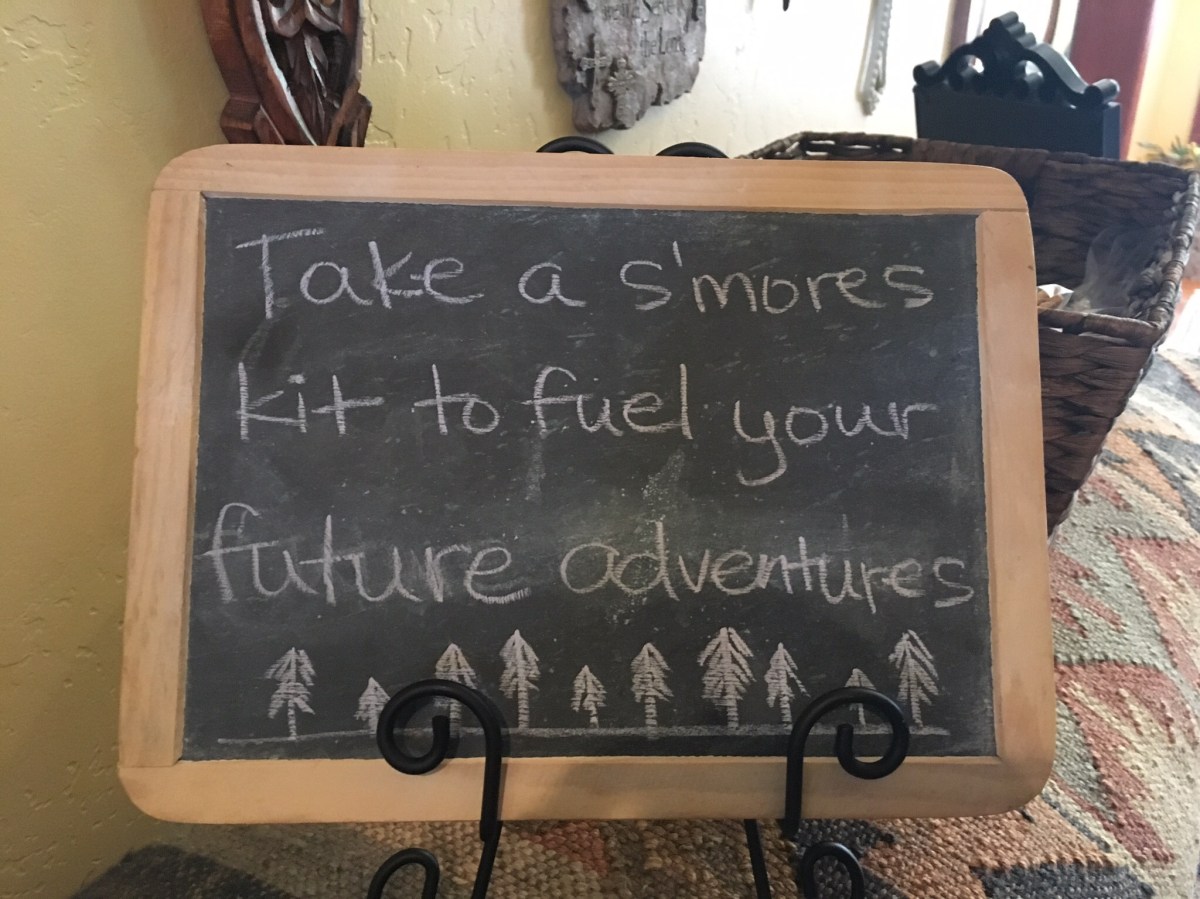 the Lord
Take a s'mores
kit to fuel your
future adventures